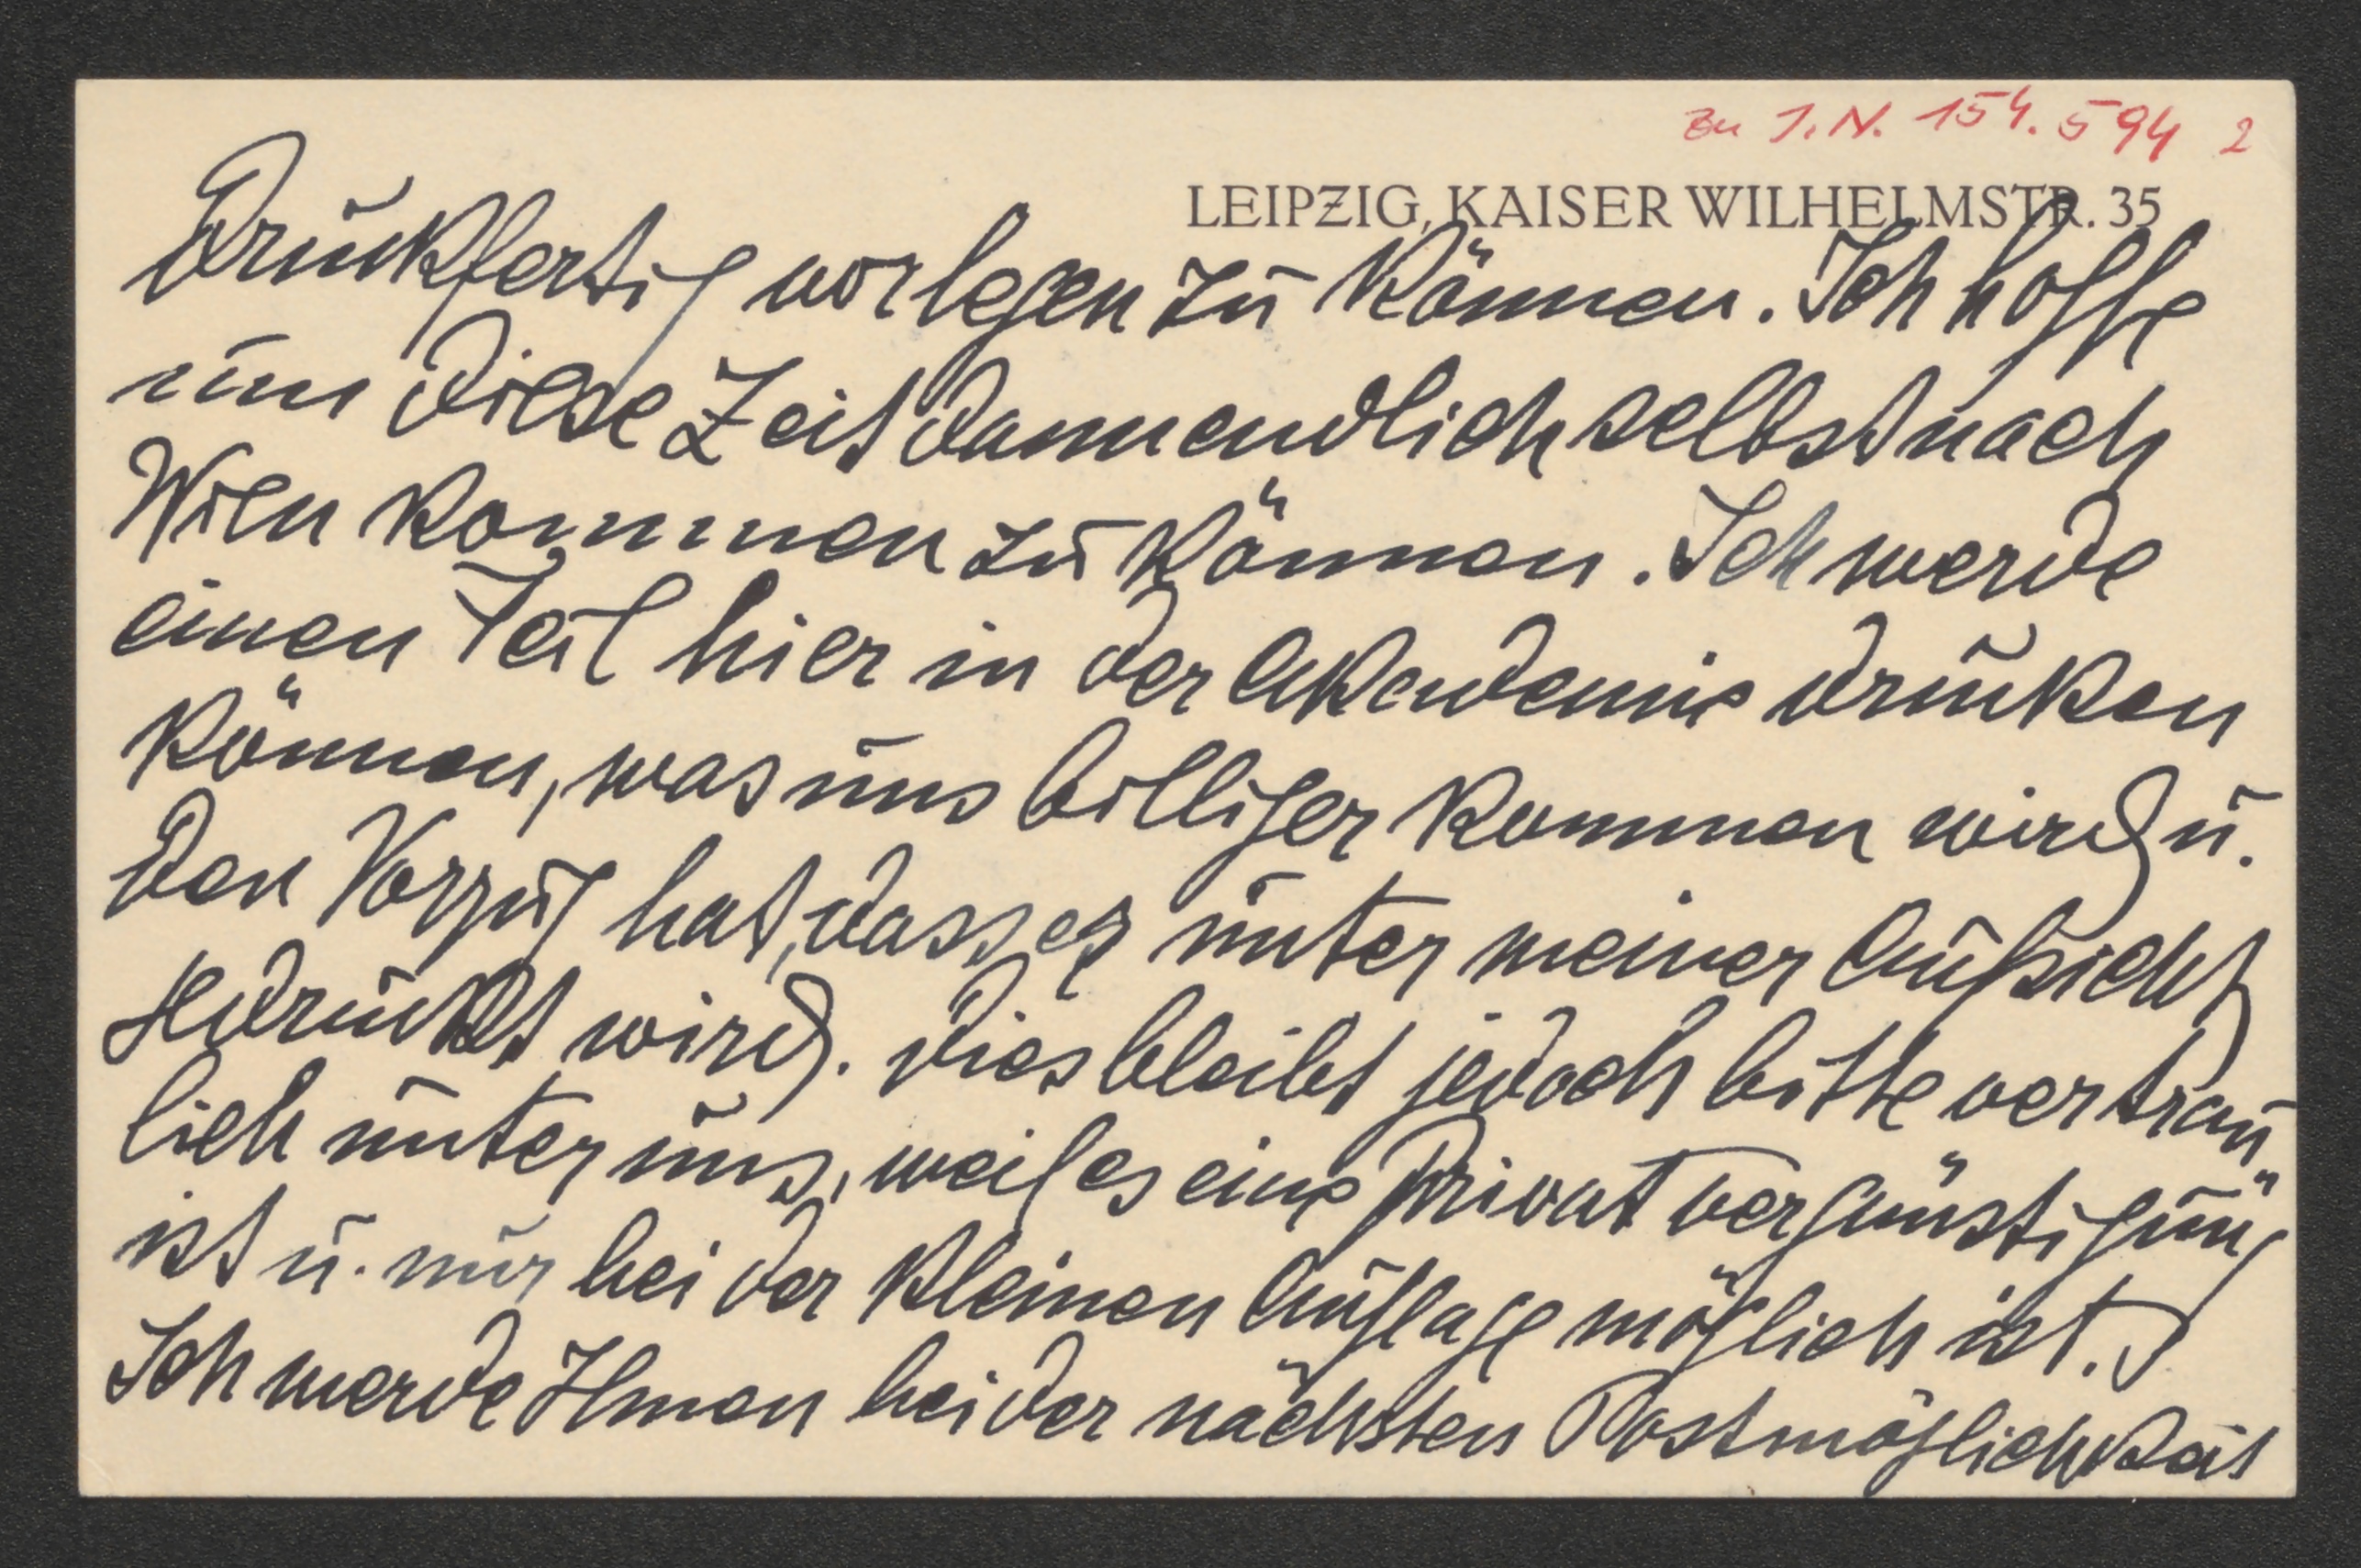 Zu I.N. 154.594 2
LEIPZIG, KAISER WILHELMSTR. 35
Druckfertig vorlegen zu können. Ich hoffe
um diese Zeit dann endlich selbst nach
Wien kommen zu können. Ich werde
einen Teil hier in der Akademie drucken
können, was uns billiger kommen wird u.
den Vorzug hat, dass es unter meiner Aufsicht
gedruckt wird. Dies bleibt jedoch bitte vertrau„
lich unter uns, weil es eine Privatvergünstigung
ist u. nur bei der kleinen Auflage möglich ist.
Ich werde Ihnen bei der nächsten Postmöglichkeit